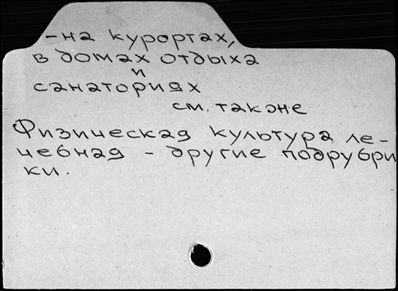 -на курортах,
в домах отдыха
и
санаториях
см. также
Физическая культура ле-
чебная - другие подрубри
ки.